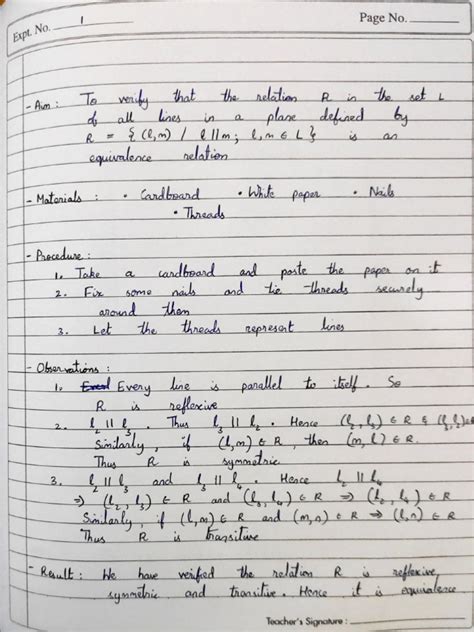 Expt. No. 1
Page No.
- Aim : To verify that the relation R in the set L
of all lines in a plane defined by
R = { (l,m) / l || m ; l, m ∈ L } is an
equivalence relation
- Materials : • Cardboard • White paper • Nails
• Threads
- Procedure :
1. Take a cardboard and paste the paper on it
2. Fix some nails and tie threads securely
around them
3. Let the threads represent lines
- Observations :
1. Every line is parallel to itself. So
R is reflexive
2. l₂ || l₃. Thus l₃ || l₂. Hence (l₂, l₃) ∈ R & (l₃, l₂) ∈
Similarly, if (l,m) ∈ R, then (m, l) ∈ R.
Thus R is symmetric
3. l₂ || l₃ and l₃ || l₄. Hence l₂ || l₄
⇒ (l₂, l₃) ∈ R and (l₃, l₄) ∈ R ⇒ (l₂, l₄) ∈ R
Similarly, if (l,m) ∈ R and (m,n) ∈ R ⇒ (l,n) ∈ R
Thus R is transitive
- Result : We have verified the relation R is reflexive,
symmetric and transitive. Hence it is equivalence
Teacher's Signature :